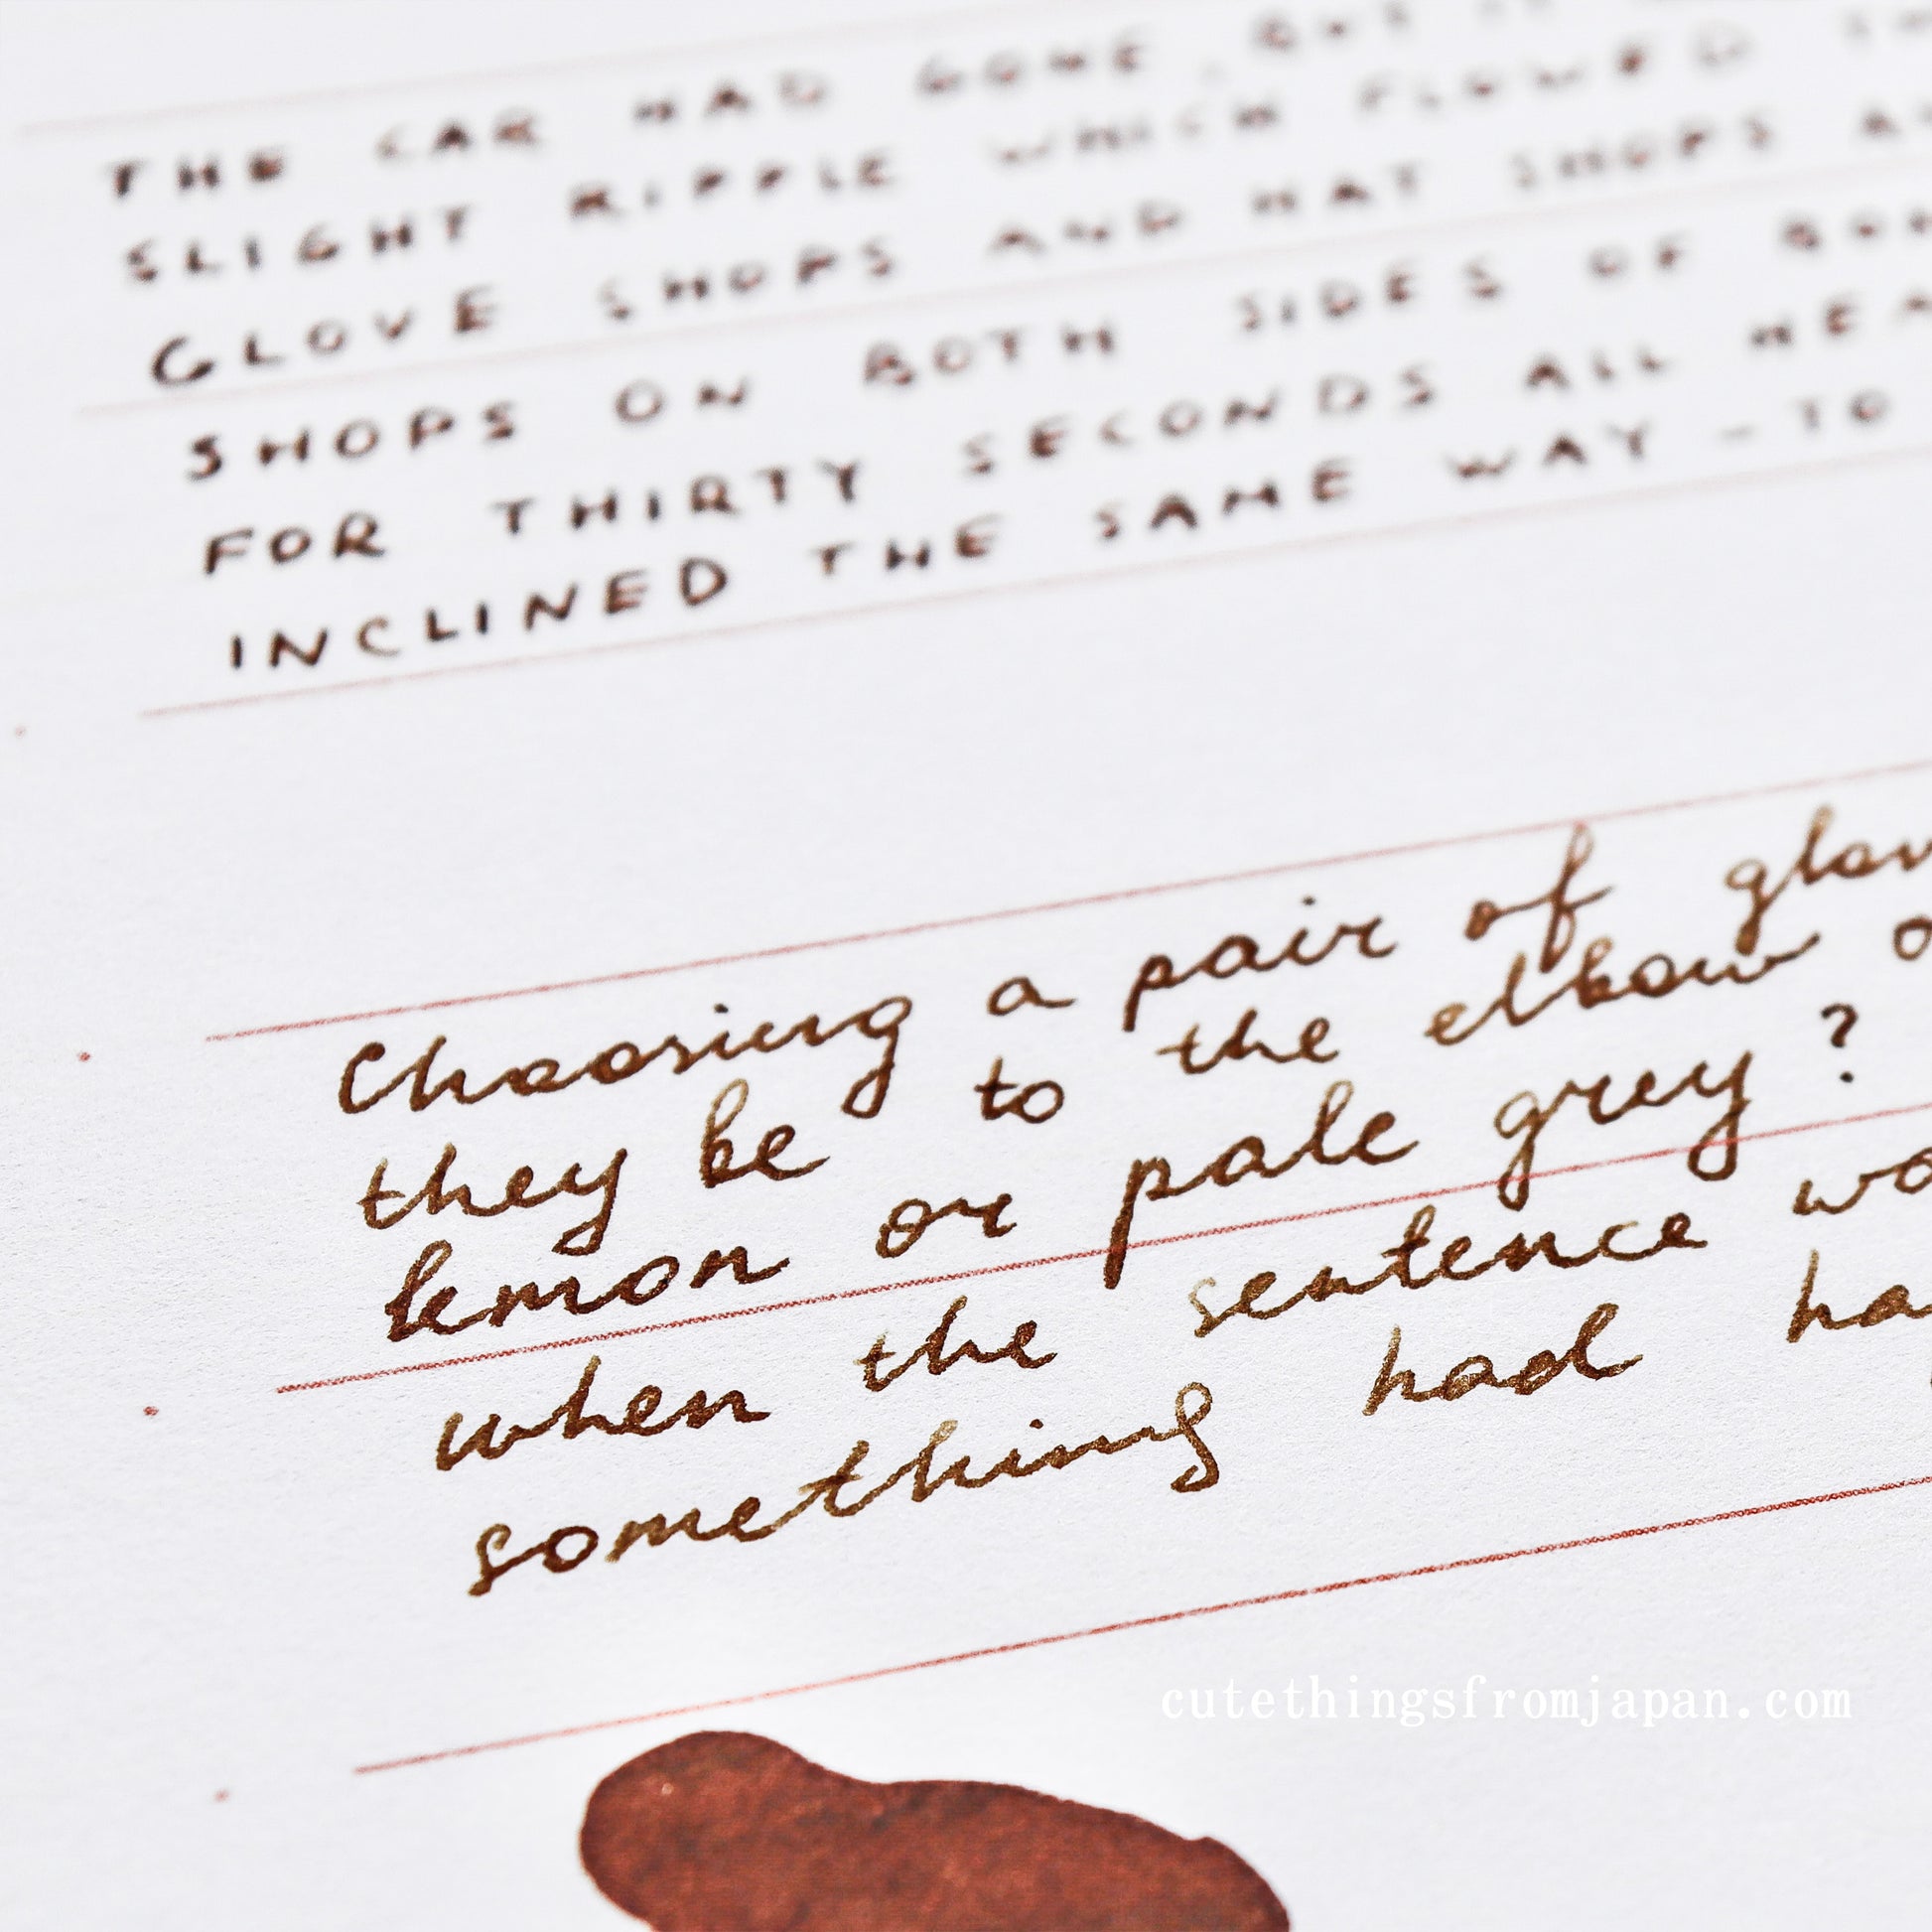 THE CAR HAD GONE, BUT IT
SLIGHT RIPPLE WHICH FLOWED
GLOVE SHOPS AND HAT SHOPS
SHOPS ON BOTH SIDES OF
FOR THIRTY SECONDS ALL
INCLINED THE SAME WAY - TO
Choosing a pair of
they be to the elbow
lemon or pale grey?
when the sentence
something had
cutethingsfromjapan.com